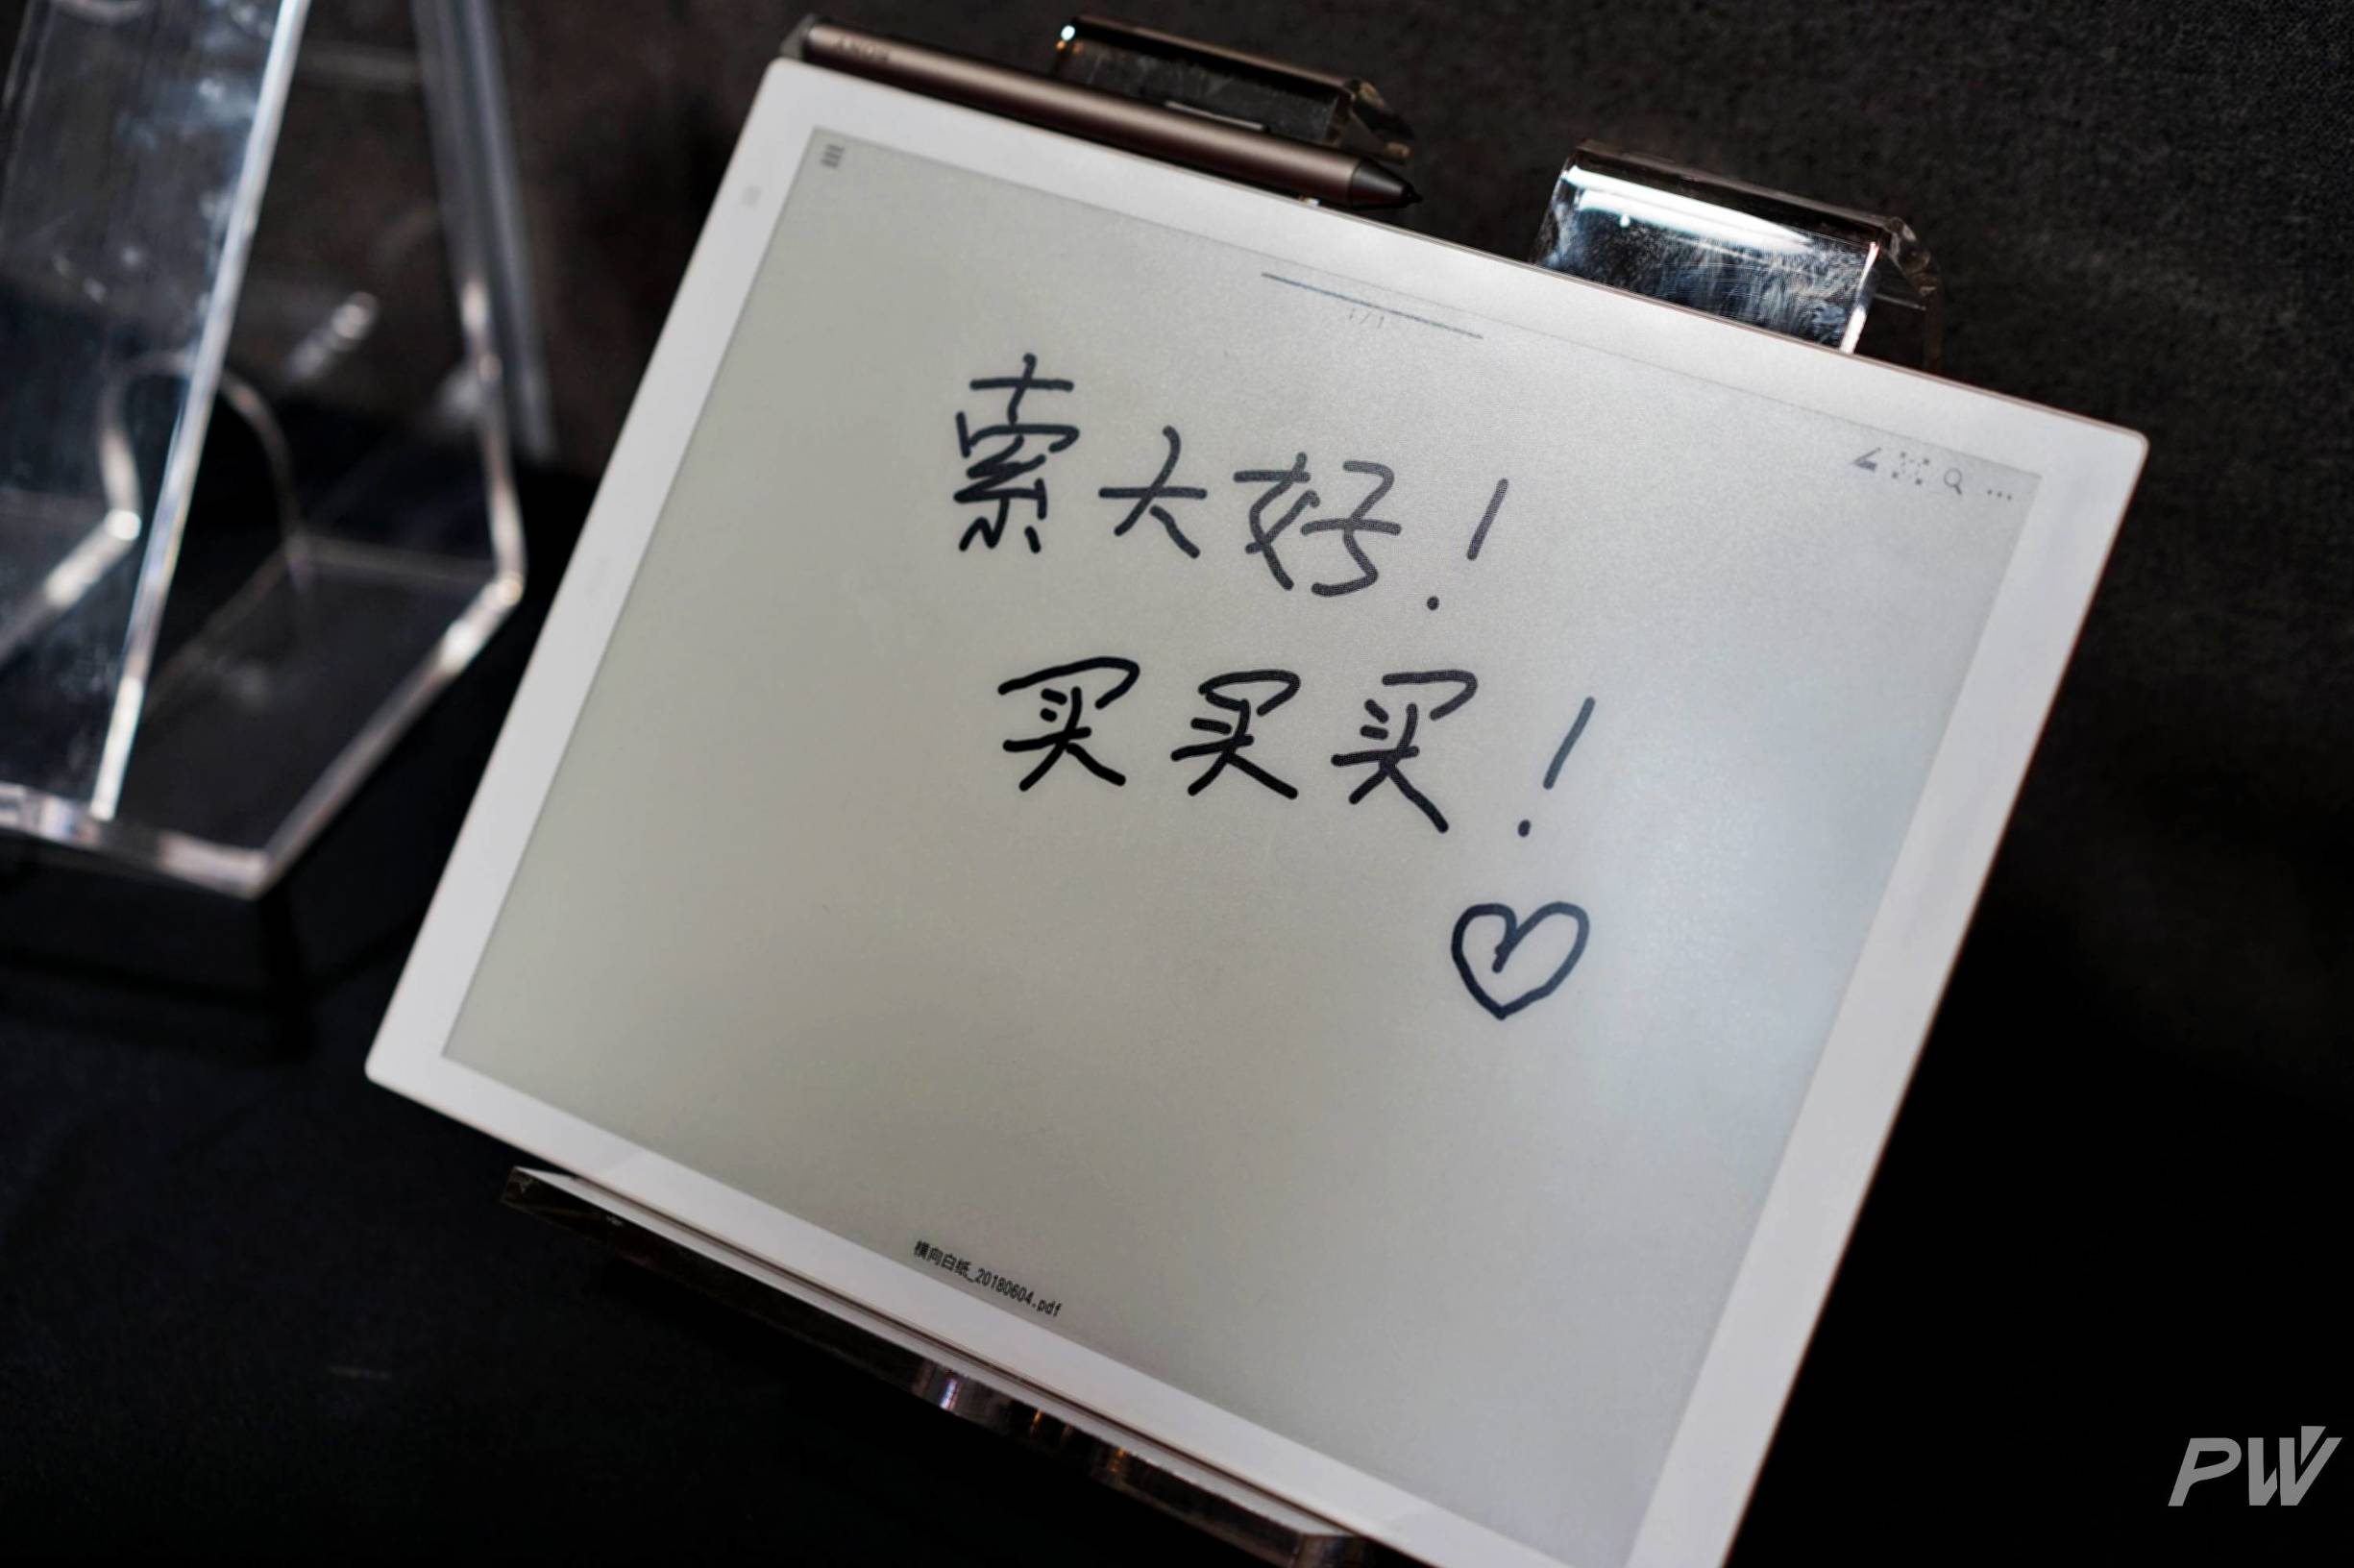 SONY
1/1
索大好！
买买买！
横向白纸_20180604.pdf
PW